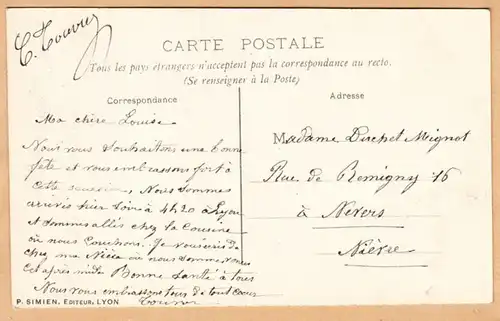 CARTE POSTALE
Tous les pays étrangers n'acceptent pas la correspondance au recto.
(Se renseigner à la Poste)
Correspondance
Adresse
Ma chère Louise
Nous vous souhaitons une bonne
fête et vous embrassons fort à
cette occasion. Nous sommes
arrivés hier soir à 4h20 à Lyon
et sommes allés chez la cousine
où nous couchons. Je vous écris de
chez ma Nièce où nous sommes venus
cet après midi Bonne Santé à tous
Nous vous embrassons tous de tout coeur
Madame Dischet Mignot
Rue de Remigny 16
à Nevers
Nièvre
P. SIMIEN, EDITEUR, LYON